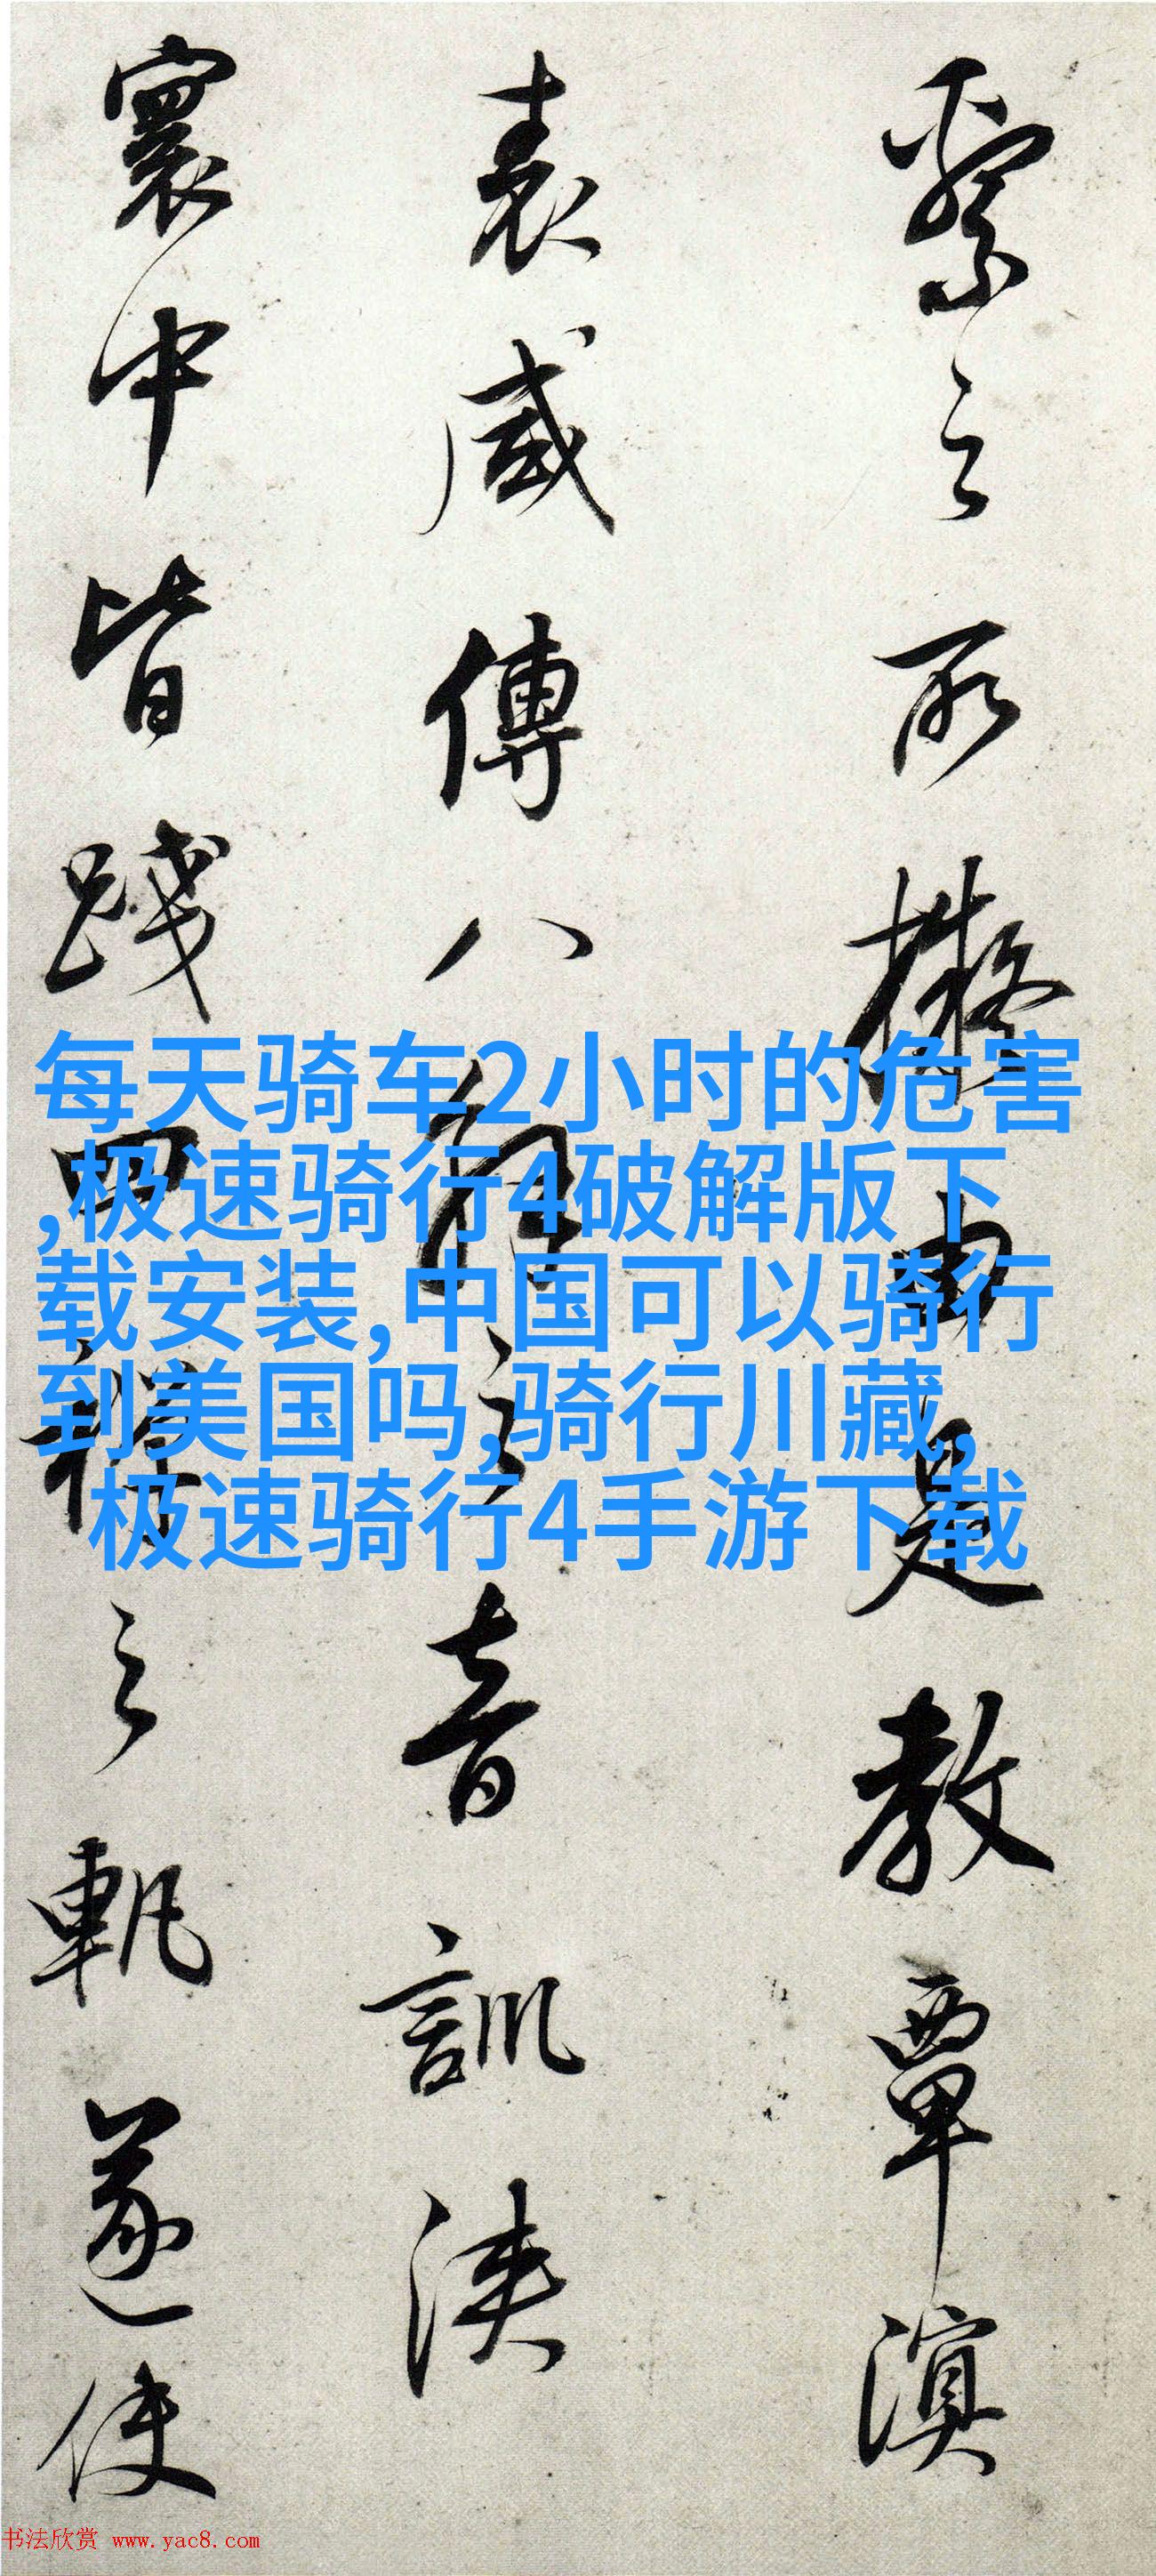 繄之所擬由是教覃溟
表咸傳八解之音訓浹
寰中皆踐四禪之軌遂使
每天骑车2小时的危害
,极速骑行4破解版下
载安装,中国可以骑行
到美国吗,骑行川藏,
极速骑行4手游下载
书法欣赏 www.yac8.com